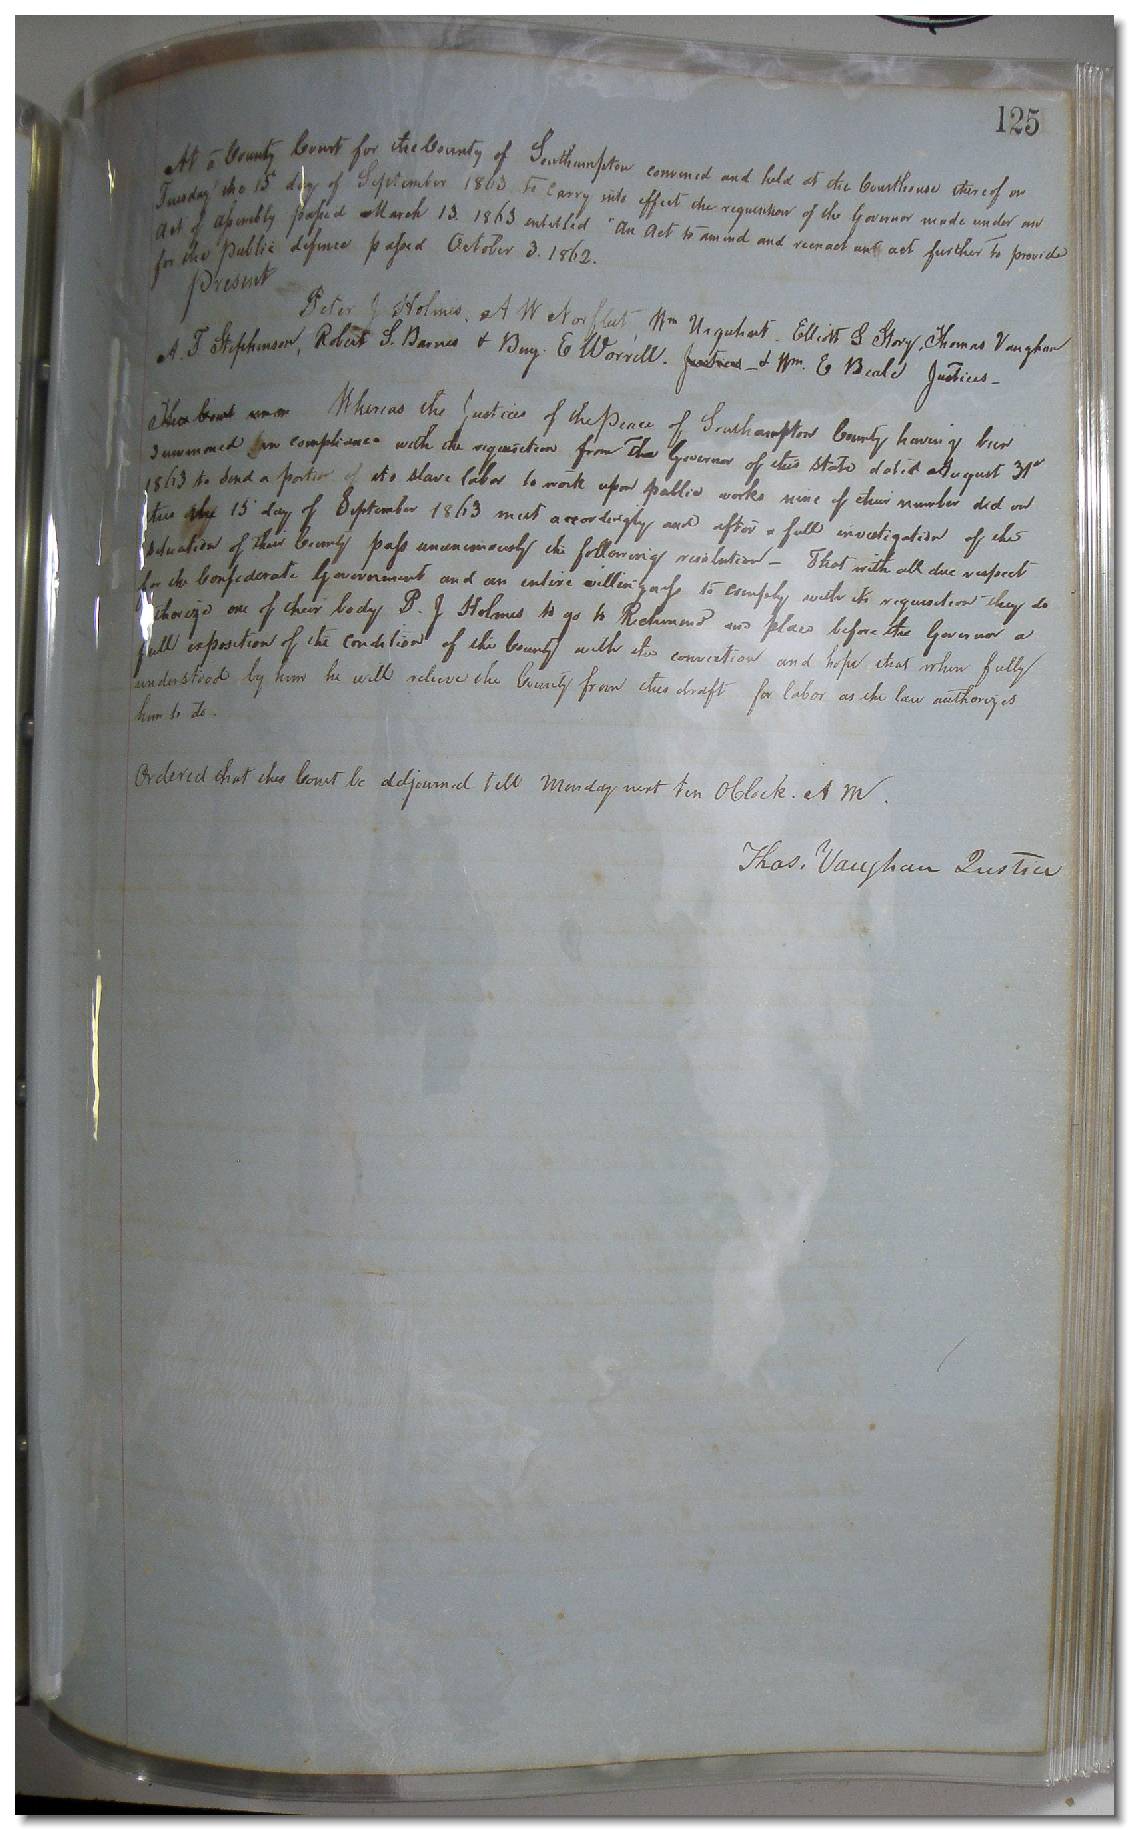 125
At a County Court for the County of Southampton convened and held at the Courthouse thereof on
Tuesday the 15th day of September 1863 to Carry into effect the requisition of the Governor made under an
Act of Assembly passed March 13. 1863 entitled "An Act to amend and reenact an act further to provide
for the Public defence passed October 3. 1862.
Present
Peter J Holmes, A W Norfleet, Wm Urquhart, Elliott L Story, Thomas Vaughan
A. T Stephenson, Robert S. Barnes & Benj. E Worrell. Justices & Wm. E Beale Justices -
The Court Whereas the Justices of the Peace of Southampton County having been
Summoned in compliance with the requisition from the Governor of this State dated August 31st
1863 to send a portion of its slave labor to work upon public works nine of their number did on
this the 15 day of September 1863 meet accordingly and after a full investigation of the
situation of their County pass unanimously the following resolution - That with all due respect
for the Confederate Government and an entire willingness to comply with its requisition they do
authorize one of their body P. J Holmes to go to Richmond and place before the Governor a
full exposition of the condition of the County with the conviction and hope that when fully
understood by him he will relieve the County from this draft for labor as the law authorizes
him to do.
Ordered that this Court be adjourned till Monday next ten OClock. A M.
Thos. Vaughan Justice